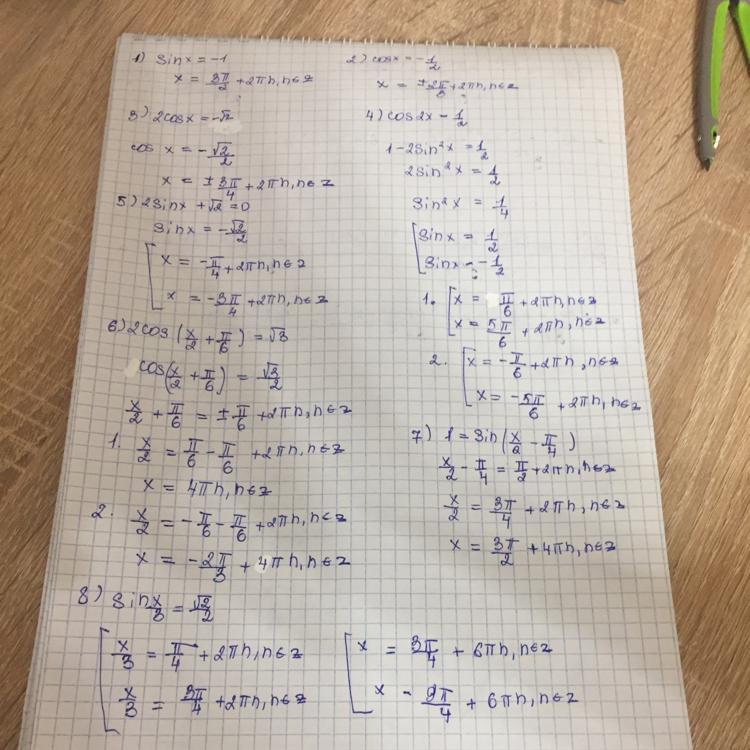 1) sinx = -1
x = 3π/2 + 2πn, n∈Z
2) cosx = -1/2
x = ±2π/3 + 2πn, n∈Z
3) 2cosx = -√2
cos x = -√2/2
x = ±3π/4 + 2πn, n∈Z
4) cos2x - 1/2
1-2sin²x = 1/2
2sin²x = 1/2
sin²x = 1/4
[ sinx = 1/2
sinx - -1/2
1. [ x = π/6 + 2πn, n∈Z
x = 5π/6 + 2πn, n∈Z
2. [ x = -π/6 + 2πn, n∈Z
x = -5π/6 + 2πn, n∈Z
5) 2sinx + √2 = 0
sinx = -√2/2
[ x = -π/4 + 2πn, n∈Z
x = -3π/4 + 2πn, n∈Z
6) 2cos(x/2 + π/6) = √3
cos(x/2 + π/6) = √3/2
x/2 + π/6 = ±π/6 + 2πn, n∈Z
1. x/2 = π/6 - π/6 + 2πn, n∈Z
x = 4πn, n∈Z
2. x/2 = -π/6 - π/6 + 2πn, n∈Z
x = -2π/3 + 4πn, n∈Z
7) 1 = sin(x/2 - π/4)
x/2 - π/4 = π/2 + 2πn, n∈Z
x/2 = 3π/4 + 2πn, n∈Z
x = 3π/2 + 4πn, n∈Z
8) sin x/3 = √2/2
[ x/3 = π/4 + 2πn, n∈Z
x/3 = 3π/4 + 2πn, n∈Z
[ x = 3π/4 + 6πn, n∈Z
x - 9π/4 + 6πn, n∈Z